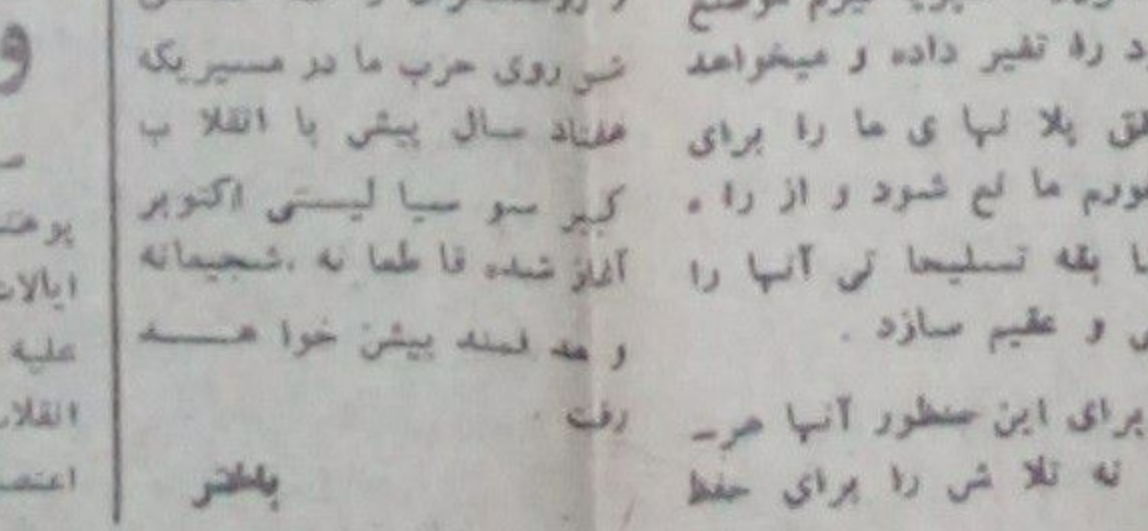 د را تغیر داده و میخواهد
لق پلا نها ی ما را برای
ما نع شود و از را ه
بقه تسلیحا تی آنها را
و عقیم سازد .
برای این منظور آنها هر ـ
نه تلا ش را برای حفظ
روی حزب ما در مسیر یکه
هفتاد سال پیش با انقلا ب
کبیر سو سیا لیستی اکتوبر
آغاز شده قا طعا نه ، شجیعانه
و هد فمند پیش خوا هـــد
رفت .
و
ایالات
علیه
انقلا